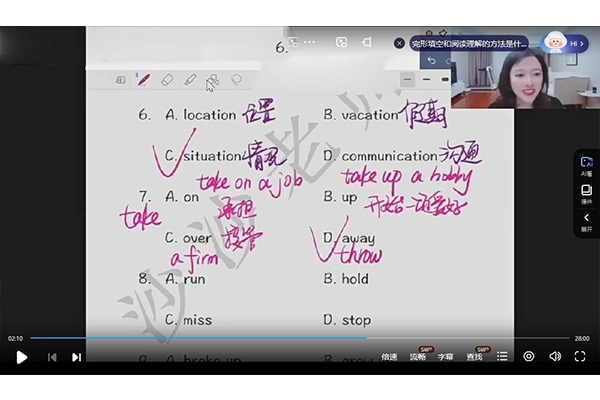 6.
完形填空和阅读理解的方法是什...
Hi >
6. A. location 位置 B. vacation 假期
C. situation 情况 D. communication 沟通
take on a job take up a hobby
7. A. on 承担 B. up 开始一项爱好
take
C. over 接管 D. away
a firm throw
8. A. run B. hold
C. miss D. stop
沙沙老师
AI看
课件
展开
02:10 28:00
倍速 流畅 SWP 字幕 查找 SWP